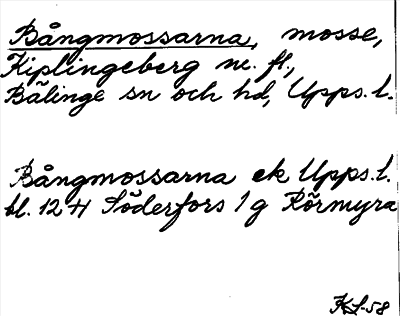 Bångmossarna, mosse,
Kiplingeberg nr. fl.,
Bälinge sn och hd, Upps. l.
Bångmossarna ek Upps. l.
bl. 12 H Söderfors 1 g Rörmyra
KL-58